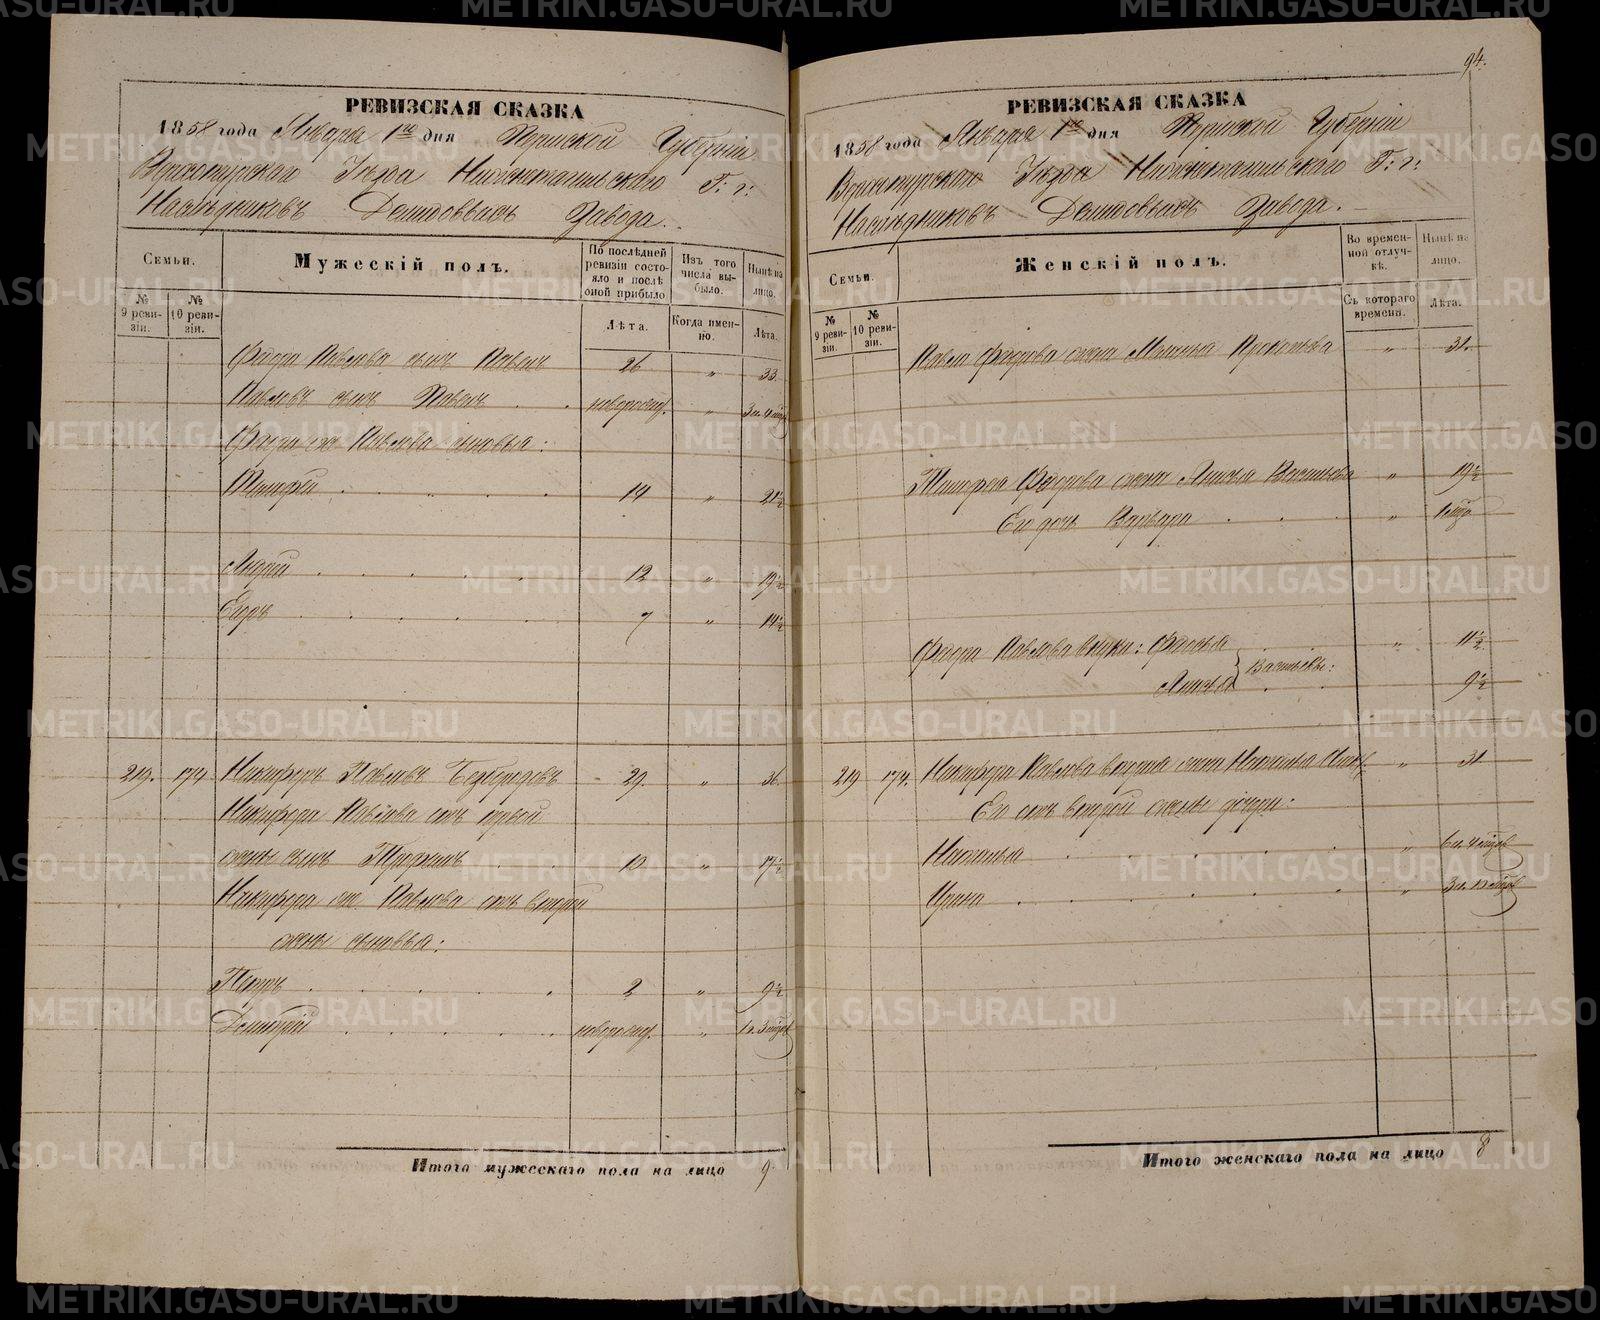 94.
РЕВИЗСКАЯ СКАЗКА
1858 года Января 1го дня Пермской Губерніи
Верхотурскаго Уѣзда Нижнетагильскаго Г: г:
Наслѣдниковъ Демидовыхъ Завода.
Семьи.
Мужескій полъ.
По послѣдней ревизіи состояло и послѣ оной прибыло
Изъ того числа выбыло.
Нынѣ на лицо.
№ 9 ревизіи.
№ 10 ревизіи.
Лѣта.
Когда именно.
Лѣта.
Федора Павлова сынъ Павелъ 26 „ 33.
Павловъ сынъ Павелъ новорожд. „ 3 л. 4 мѣс
Федора же Павлова сыновья:
Тимофей 14 „ 21½
Андрей 12 „ 19½
Егоръ 7 „ 14½
219. 174 Никифоръ Павловъ Безбородовъ 29. „ 36.
Никифора Павлова отъ первой
жены сынъ Трофимъ 10 „ 17½
Никифора же Павлова отъ второй
жены сыновья:
Петръ 2 „ 9½
Дмитрій новорожд. „ 1 г. 3 мѣс
Итого мужескаго пола на лицо 9.
РЕВИЗСКАЯ СКАЗКА
1858 года Января 1го дня Пермской Губерніи
Верхотурскаго Уѣзда Нижнетагильскаго Г: г:
Наслѣдниковъ Демидовыхъ Завода.
Семьи.
Женскій полъ.
Во временной отлучкѣ.
Нынѣ на лицо.
№ 9 ревизіи.
№ 10 ревизіи.
Съ котораго времени.
Лѣта.
Павла Федорова жена Марья Прокопьева „ 31.
Тимофея Федорова жена Анисья Васильева „ 19½
Его дочь Варвара „ 1 мѣс
Федора Павлова внуки: Федосья „ 11½
Васильевы:
Анисья „ 9½
219 174. Никифора Павлова вторая жена Наталья „ 31
Его отъ второй жены дочери:
Наталья „ 6 л. 4 мѣс
Ирина „ 3 л. мѣс
Итого женскаго пола на лицо 8
METRIKI.GASO-URAL.RU